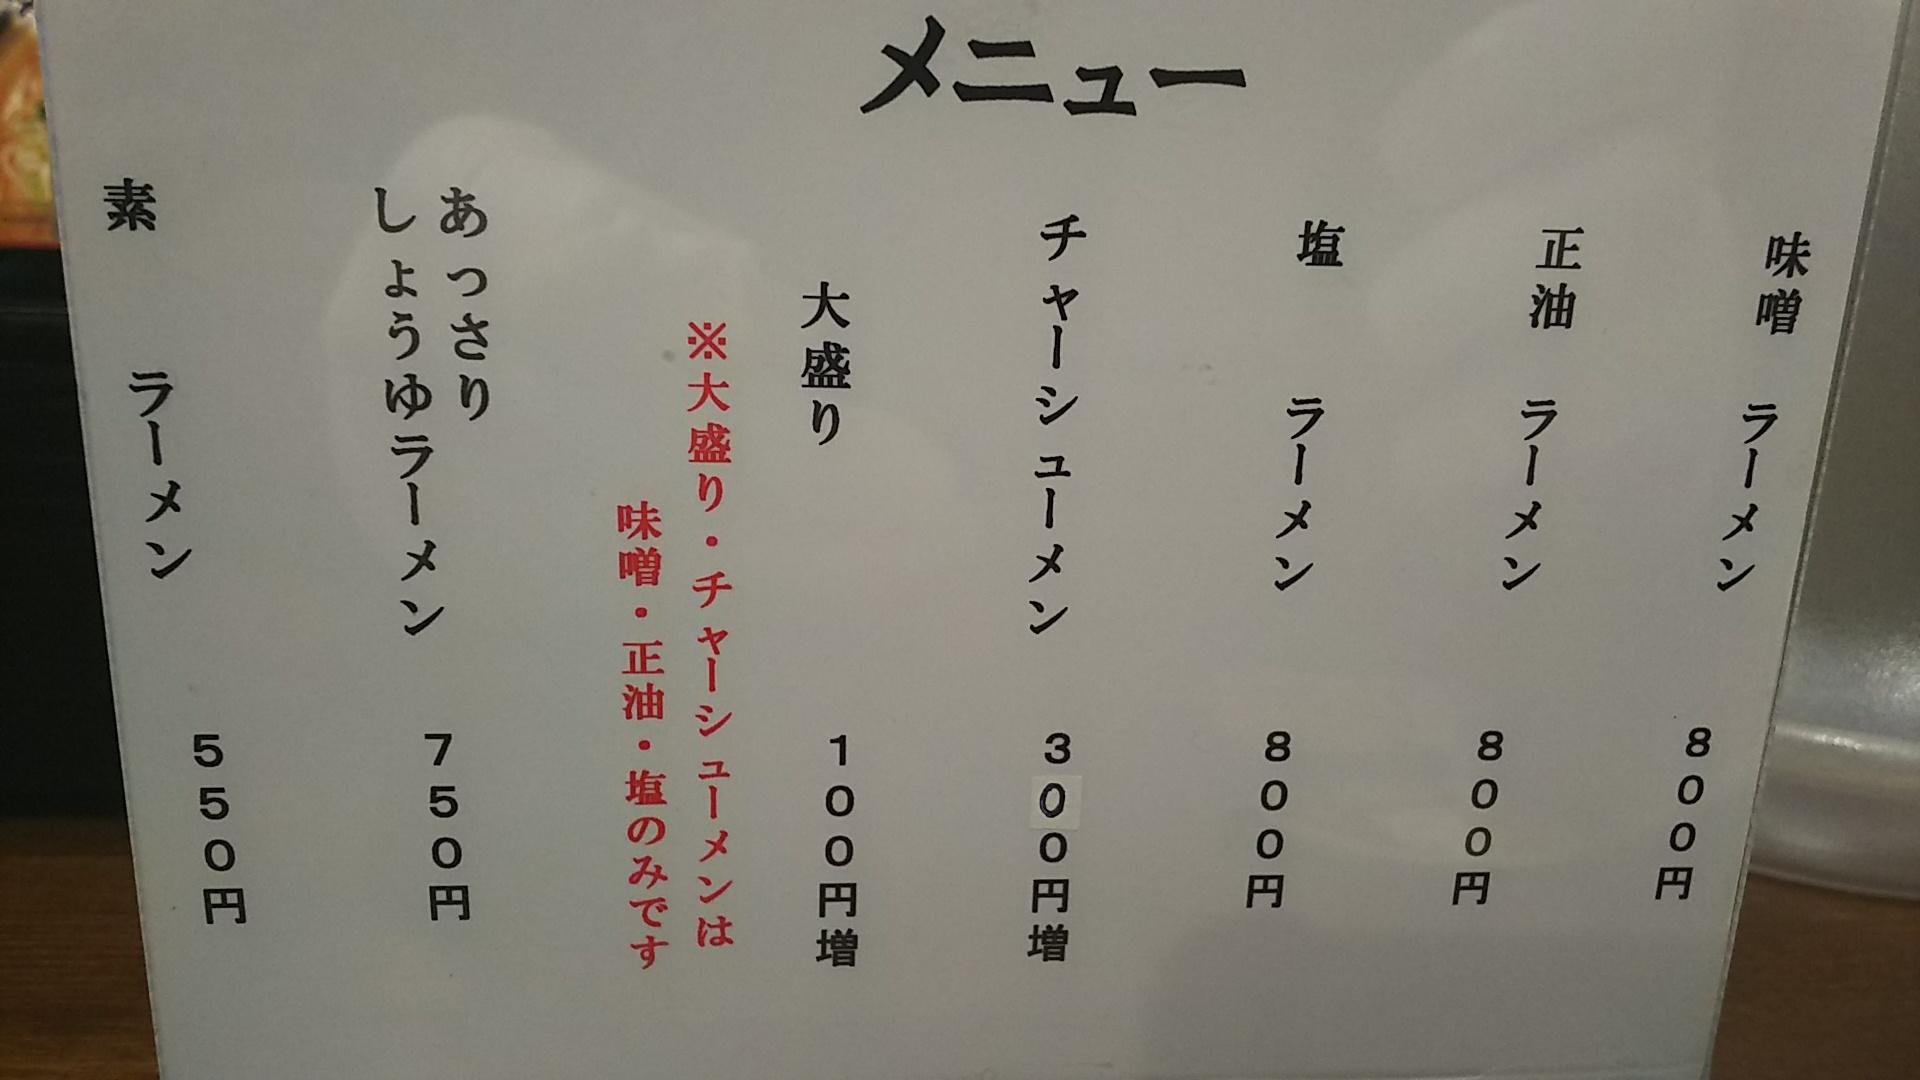 メニュー
味噌 ラーメン 800円
正油 ラーメン 800円
塩 ラーメン 800円
チャーシューメン 300円増
大盛り 100円増
※大盛り・チャーシューメンは
味噌・正油・塩のみです
あっさり
しょうゆラーメン 750円
素 ラーメン 550円